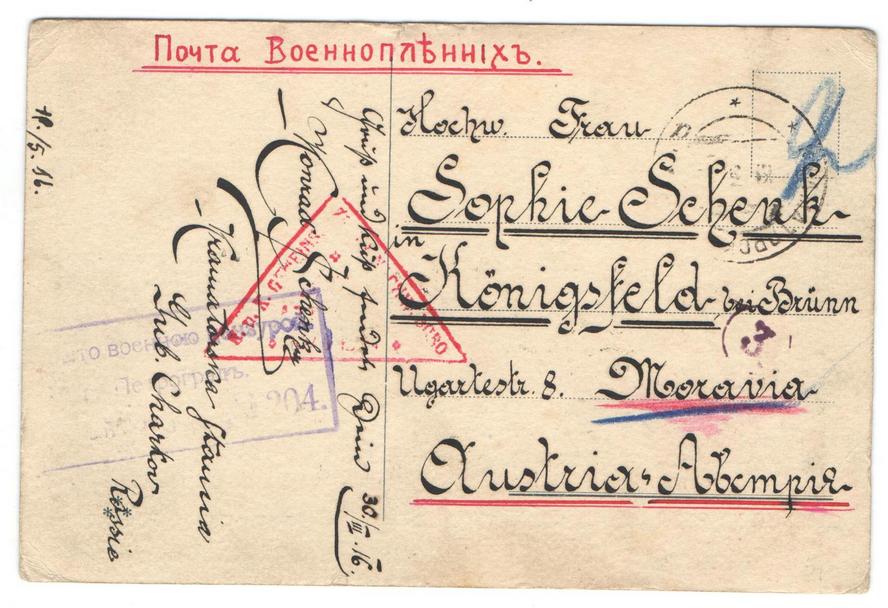 Почта Военноплѣнніхъ.
Hochw. Frau
Sophie Schenk
in
Königsfeld bei Brünn
Ugartestr. 8.
Moravia
Austria-Австрія
Gruß und Kuß sendet Dein
30./III. 16.
Konrad Schenk
Kramatorskaja Stania
Gub. Charkow
Rossie
/5. 16.
военною
204.